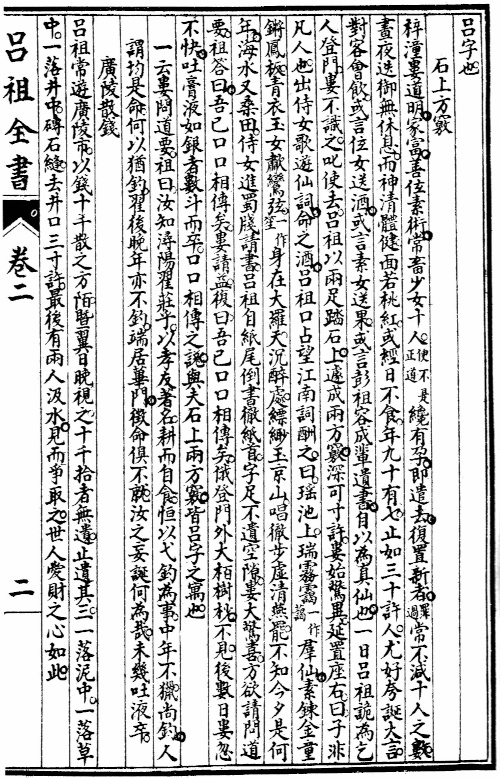 呂字也
石上方竅
梓潼婁道明家富善位素術常畜少女十人便不是正道纔有孕即遣去復置新者罪過常不減十人之數
晝夜迭御無休息而神清體健面若桃紅或經日不食年九十有七止如三十許人尤好夸誕大言
對客會飲或言位女送酒或言素女送果或言彭祖容成輩遺書自以為真仙也一日呂祖詭為乞
人登門婁不識之叱使去呂祖以兩足踏石上遽成兩方竅深可寸許婁始驚異延置座右曰子非
凡人也出侍女歌遊仙詞命之酒呂祖口占望江南詞酬之曰瑤池上瑞霧靄一作藹群仙素鍊金童
鏘鳳板青衣玉女獻鸞弦一作笙身在大羅天沉醉處縹緲玉京山唱徹步虛清燕罷不知今夕是何
年海水又桑田侍女進蜀牋請書呂祖自紙尾倒書徹紙首字足不遺空隙婁大驚喜方欲請問道
要祖答曰吾已口口相傳矣婁請益復曰吾已口口相傳矣俄登門外大栢樹杪不見後數日婁忽
不快吐膏液如銀者數斗而卒口口相傳之說與夫石上兩方竅皆呂字之寓也
一云婁問道要祖曰汝知潯陽翟莊乎以孝友著名耕而自食恒以弋釣為事中年不獵尚釣人
謂均是命何以猶釣翟後晚年亦不釣端居蓽門徵命俱不就汝之妄誕何為哉未幾吐液卒
廣陵散錢
呂祖常遊廣陵市以錢十千散之方陌暨翼日晚視之十千拾者無遺止遺其三一落泥中一落草
中一落井中磚石縫去井口三寸許最後有兩人汲水見而爭取之世人愛財之心如此
呂祖全書
卷二
二